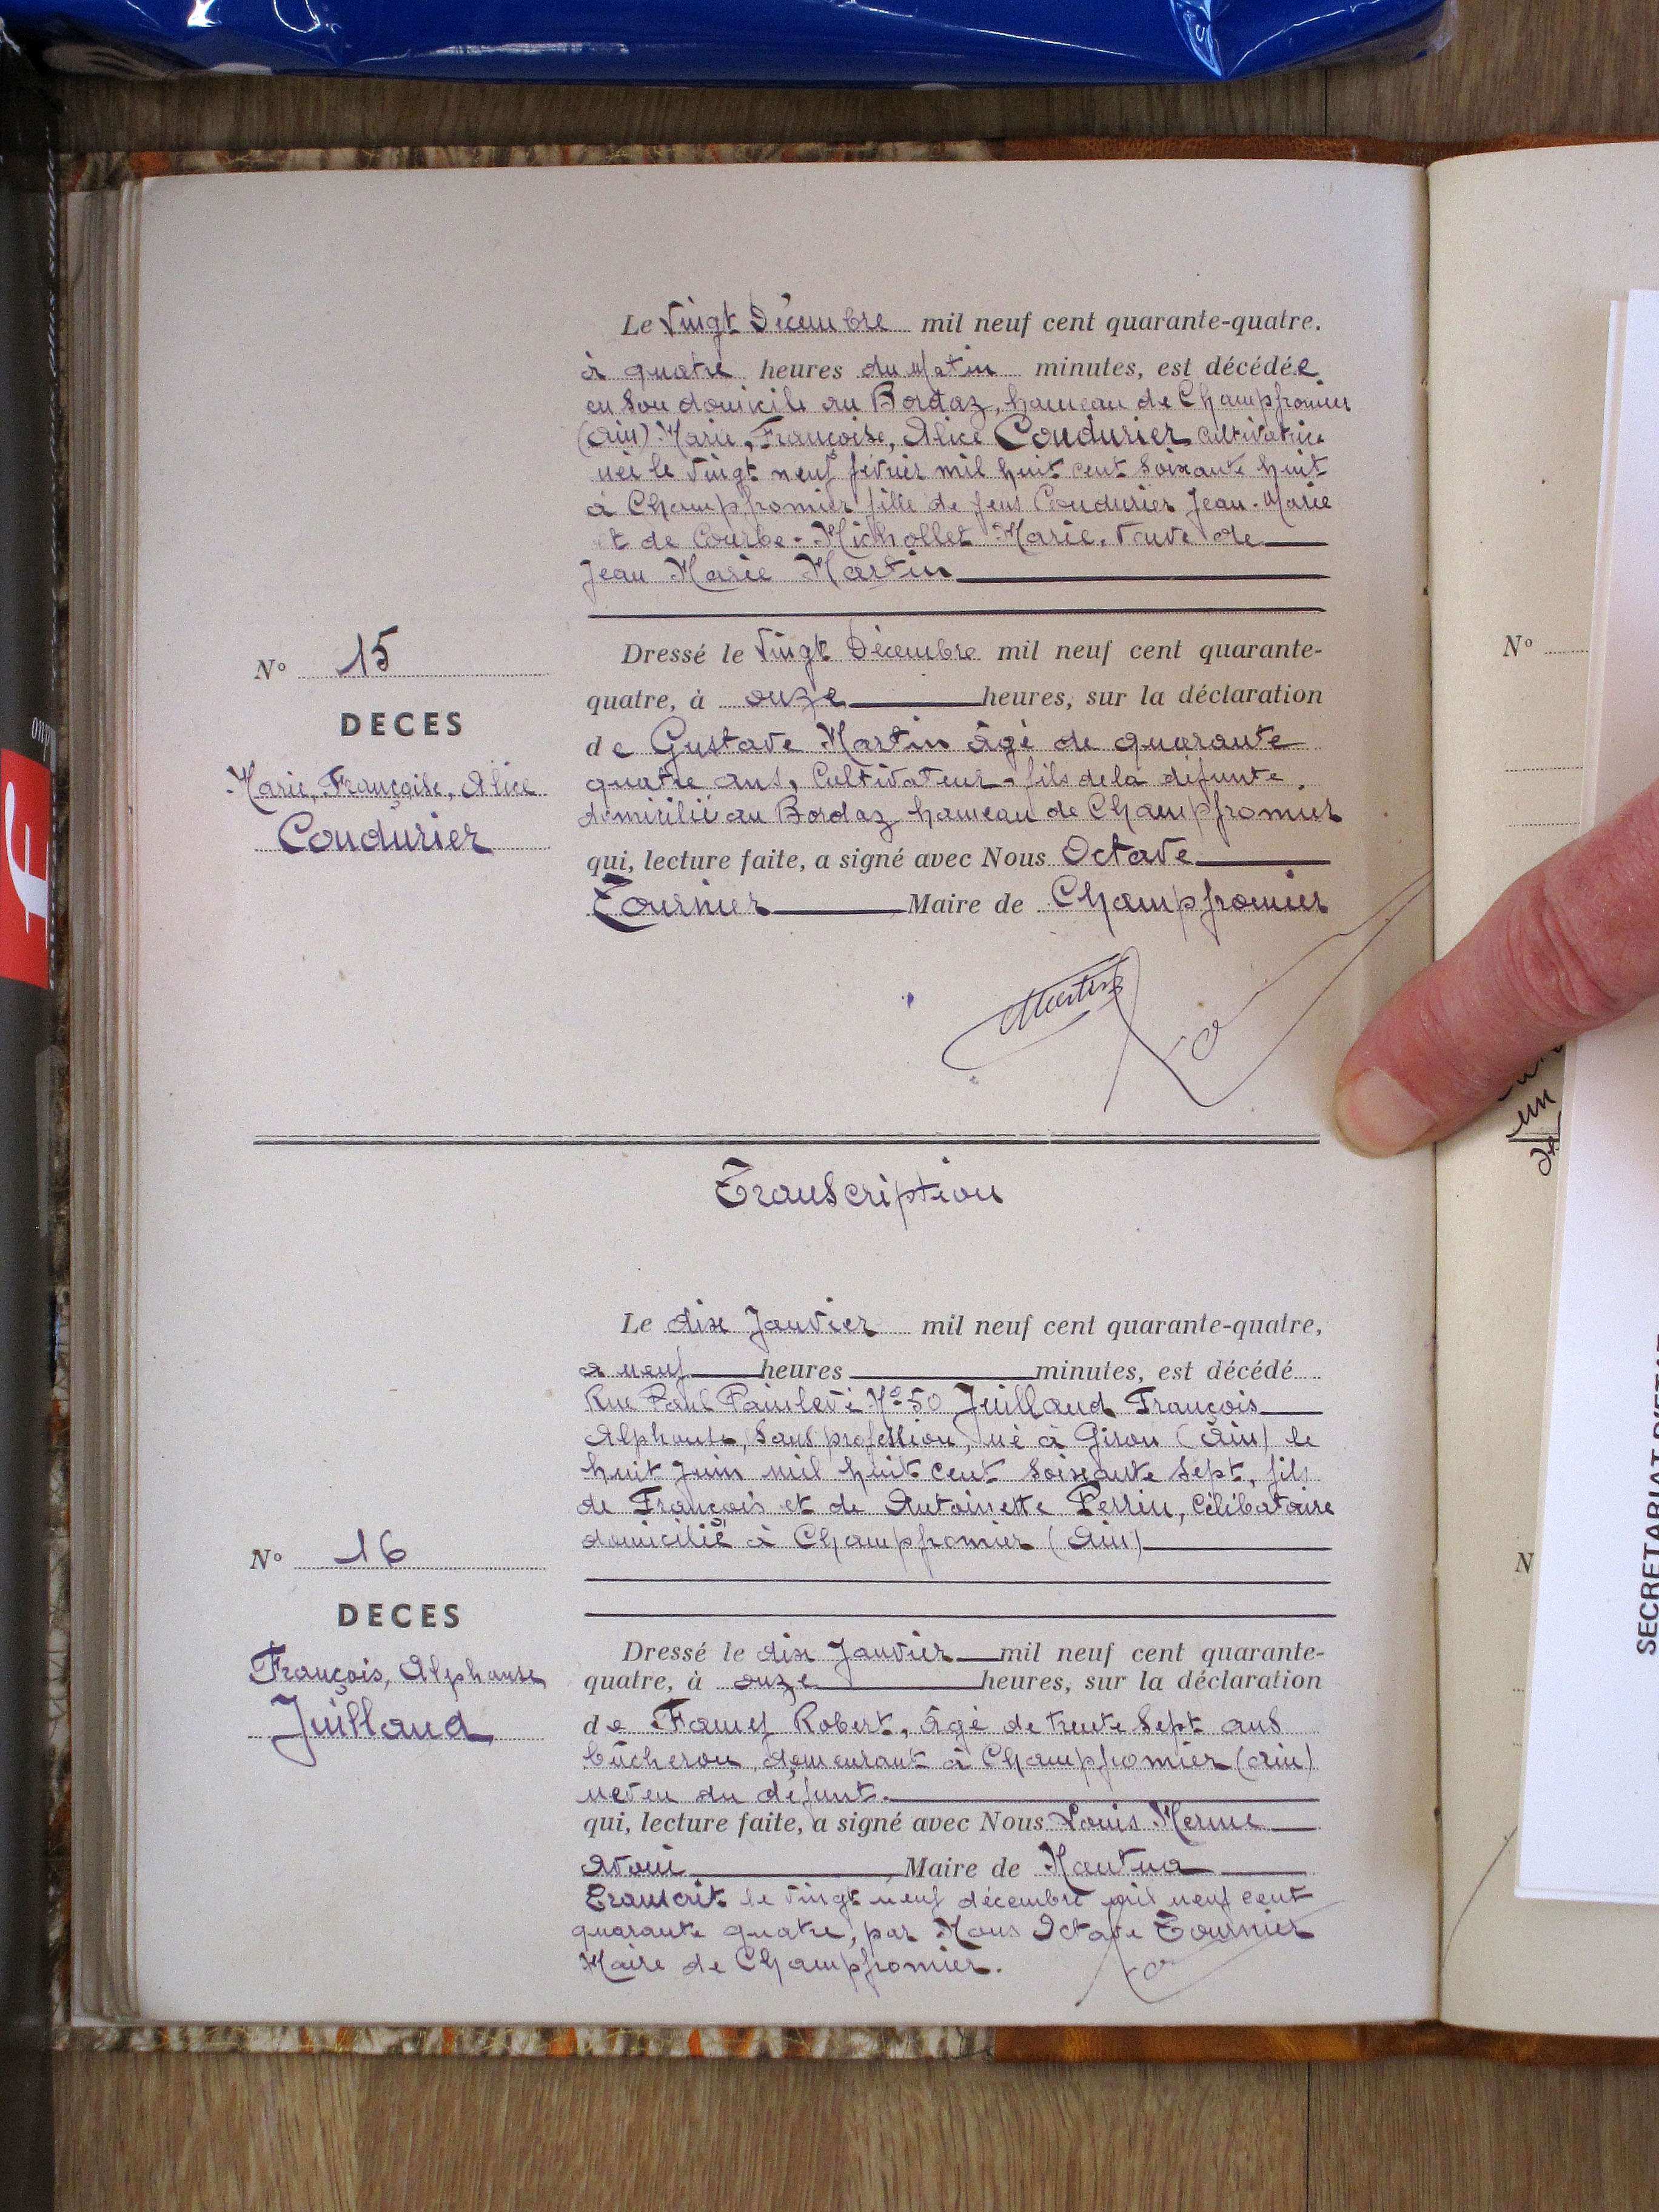 Le Vingt Décembre mil neuf cent quarante-quatre.
à quatre heures du Matin minutes, est décédée
en son domicile au Bordaz, hameau de Champfromier
(Ain) Marie, Françoise, Alice Coudurier cultivatrice
née le vingt neuf février mil huit cent soixante huit
à Champfromier fille de feus Coudurier Jean-Marie
et de Courbe-Michollet Marie, Veuve de
Jean Marie Martin
Nº 15
DECES
Marie, Françoise, Alice
Coudurier
Dressé le Vingt Décembre mil neuf cent quarante-
quatre, à onze heures, sur la déclaration
de Gustave Martin âgé de quarante
quatre ans, Cultivateur, fils de la défunte
domicilié au Bordaz hameau de Champfromier
qui, lecture faite, a signé avec Nous Octave
Tournier Maire de Champfromier
Martin
Transcription
Le dix Janvier mil neuf cent quarante-quatre,
à neuf heures minutes, est décédé
Rue Paul Painlevé Nº 50 Juilland François
Alphonse, Sans profession, né à Giron (Ain) le
huit Juin mil huit cent soixante sept, fils
de François et de Antoinette Perrin, Célibataire
domicilié à Champfromier (Ain)
Nº 16
DECES
François, Alphonse
Juilland
Dressé le dix Janvier mil neuf cent quarante-
quatre, à onze heures, sur la déclaration
de Famej Robert, âgé de trente sept ans
bûcheron demeurant à Champfromier (Ain)
neveu du défunt.
qui, lecture faite, a signé avec Nous Louis Merme
Maire de Nantua
Transcrit le vingt neuf décembre mil neuf cent
quarante quatre, par Nous Octave Tournier
Maire de Champfromier.
Nº
un
de
N
SECRETARIAT D'ETAT